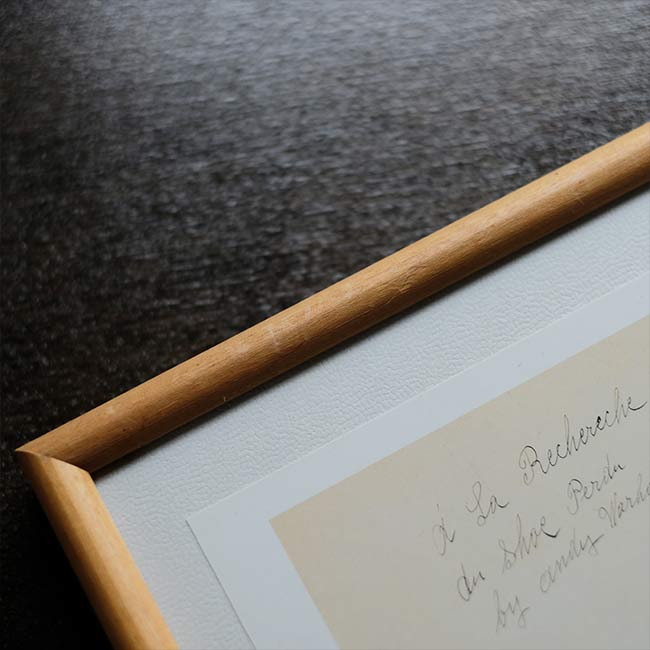 á La Rechereche
du Shoe Perdu
by andy Warho